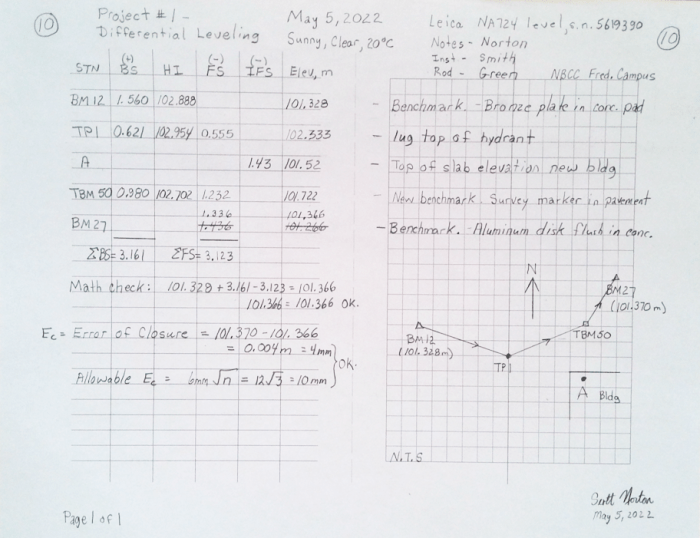 10
Project #1 -
Differential Leveling
May 5, 2022
Sunny, Clear, 20°C
STN (+) BS HI (-) FS (-) IFS Elev, m
BM 12 1.560 102.888 101.328
TP1 0.621 102.954 0.555 102.333
A 1.43 101.52
TBM 50 0.980 102.702 1.232 101.722
1.336 101.366
BM27 1.436 101.266
ΣBS= 3.161 ΣFS= 3.123
Math check: 101.328 + 3.161 - 3.123 = 101.366
101.366 = 101.366 OK.
Ec = Error of Closure = 101.370 - 101.366
= 0.004m = 4mm
Allowable Ec = 6mm √n = 12√3 = 10mm
OK.
Page 1 of 1
Leica NA724 level, s.n. 5619390
Notes - Norton
Inst - Smith
Rod - Green
NBCC Fred. Campus
10
- Benchmark. - Bronze plate in conc. pad
- lug top of hydrant
- Top of slab elevation new bldg
- New benchmark. Survey marker in pavement
- Benchmark. Aluminum disk flush in conc.
N
BM27
(101.370m)
BM12
(101.328m)
TBM50
TP1
A Bldg
N.T.S
Scott Norton
May 5, 2022